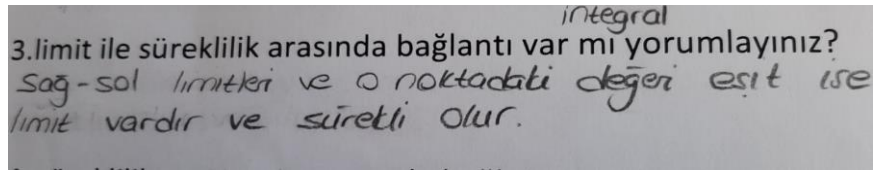 integral
3.limit ile süreklilik arasında bağlantı var mı yorumlayınız?
Sağ-sol limitleri ve o noktadaki değeri eşit ise
limit vardır ve sürekli olur.